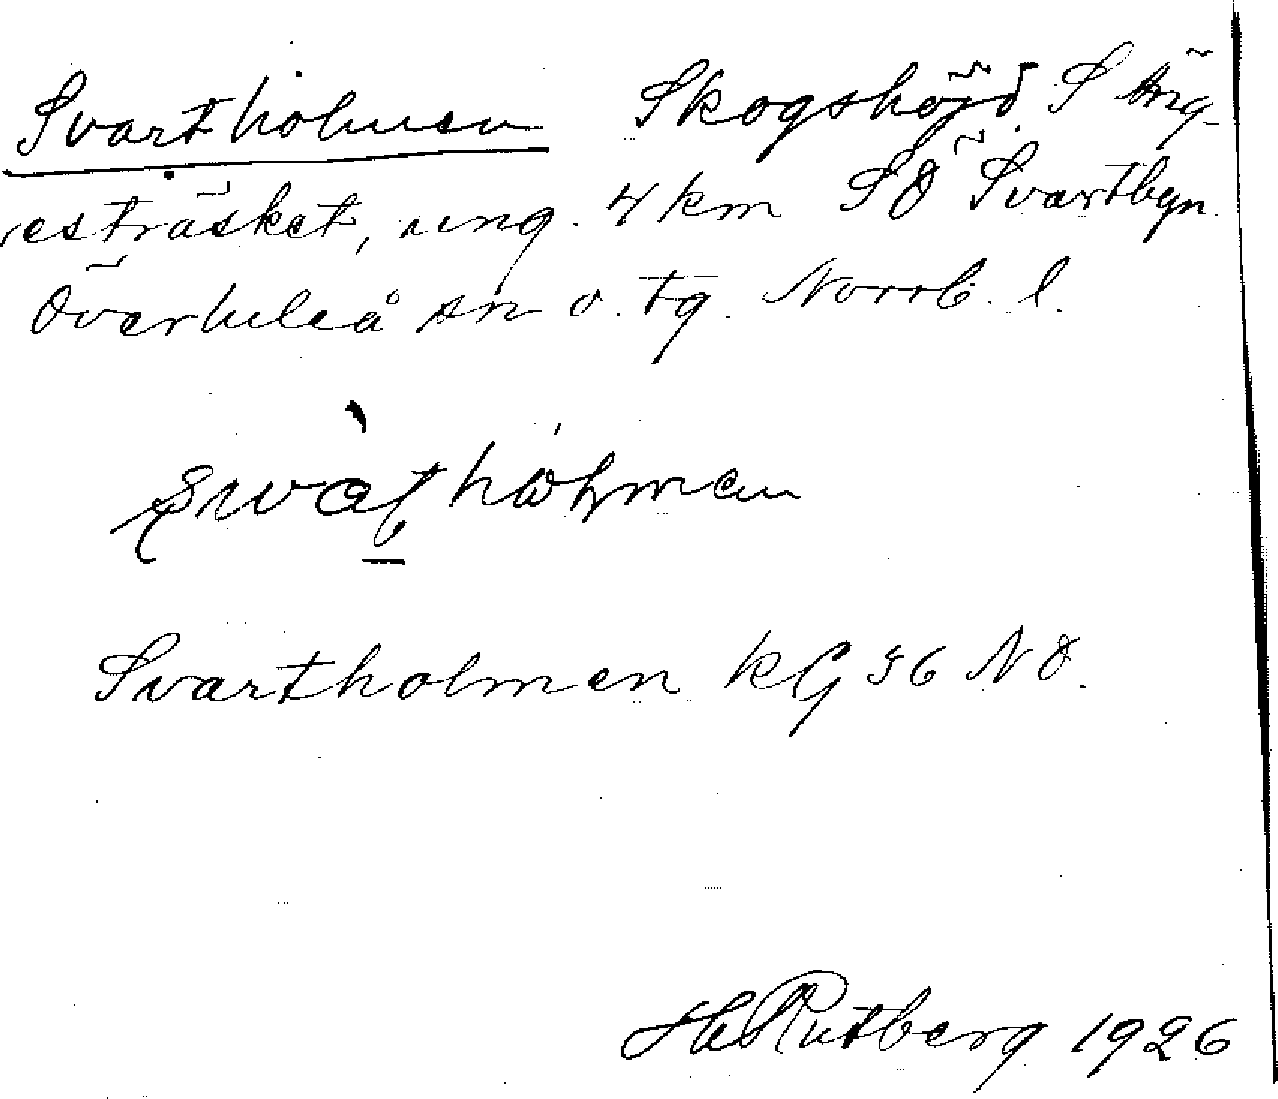 Svartholmen Skogshöjd S Äng-
esträsket, ung. 4 km SÖ Svartbyn.
Överluleå sn o. tg. Norrb. l.
Svartholmen KG 36 NÖ.
H Rutberg 1926